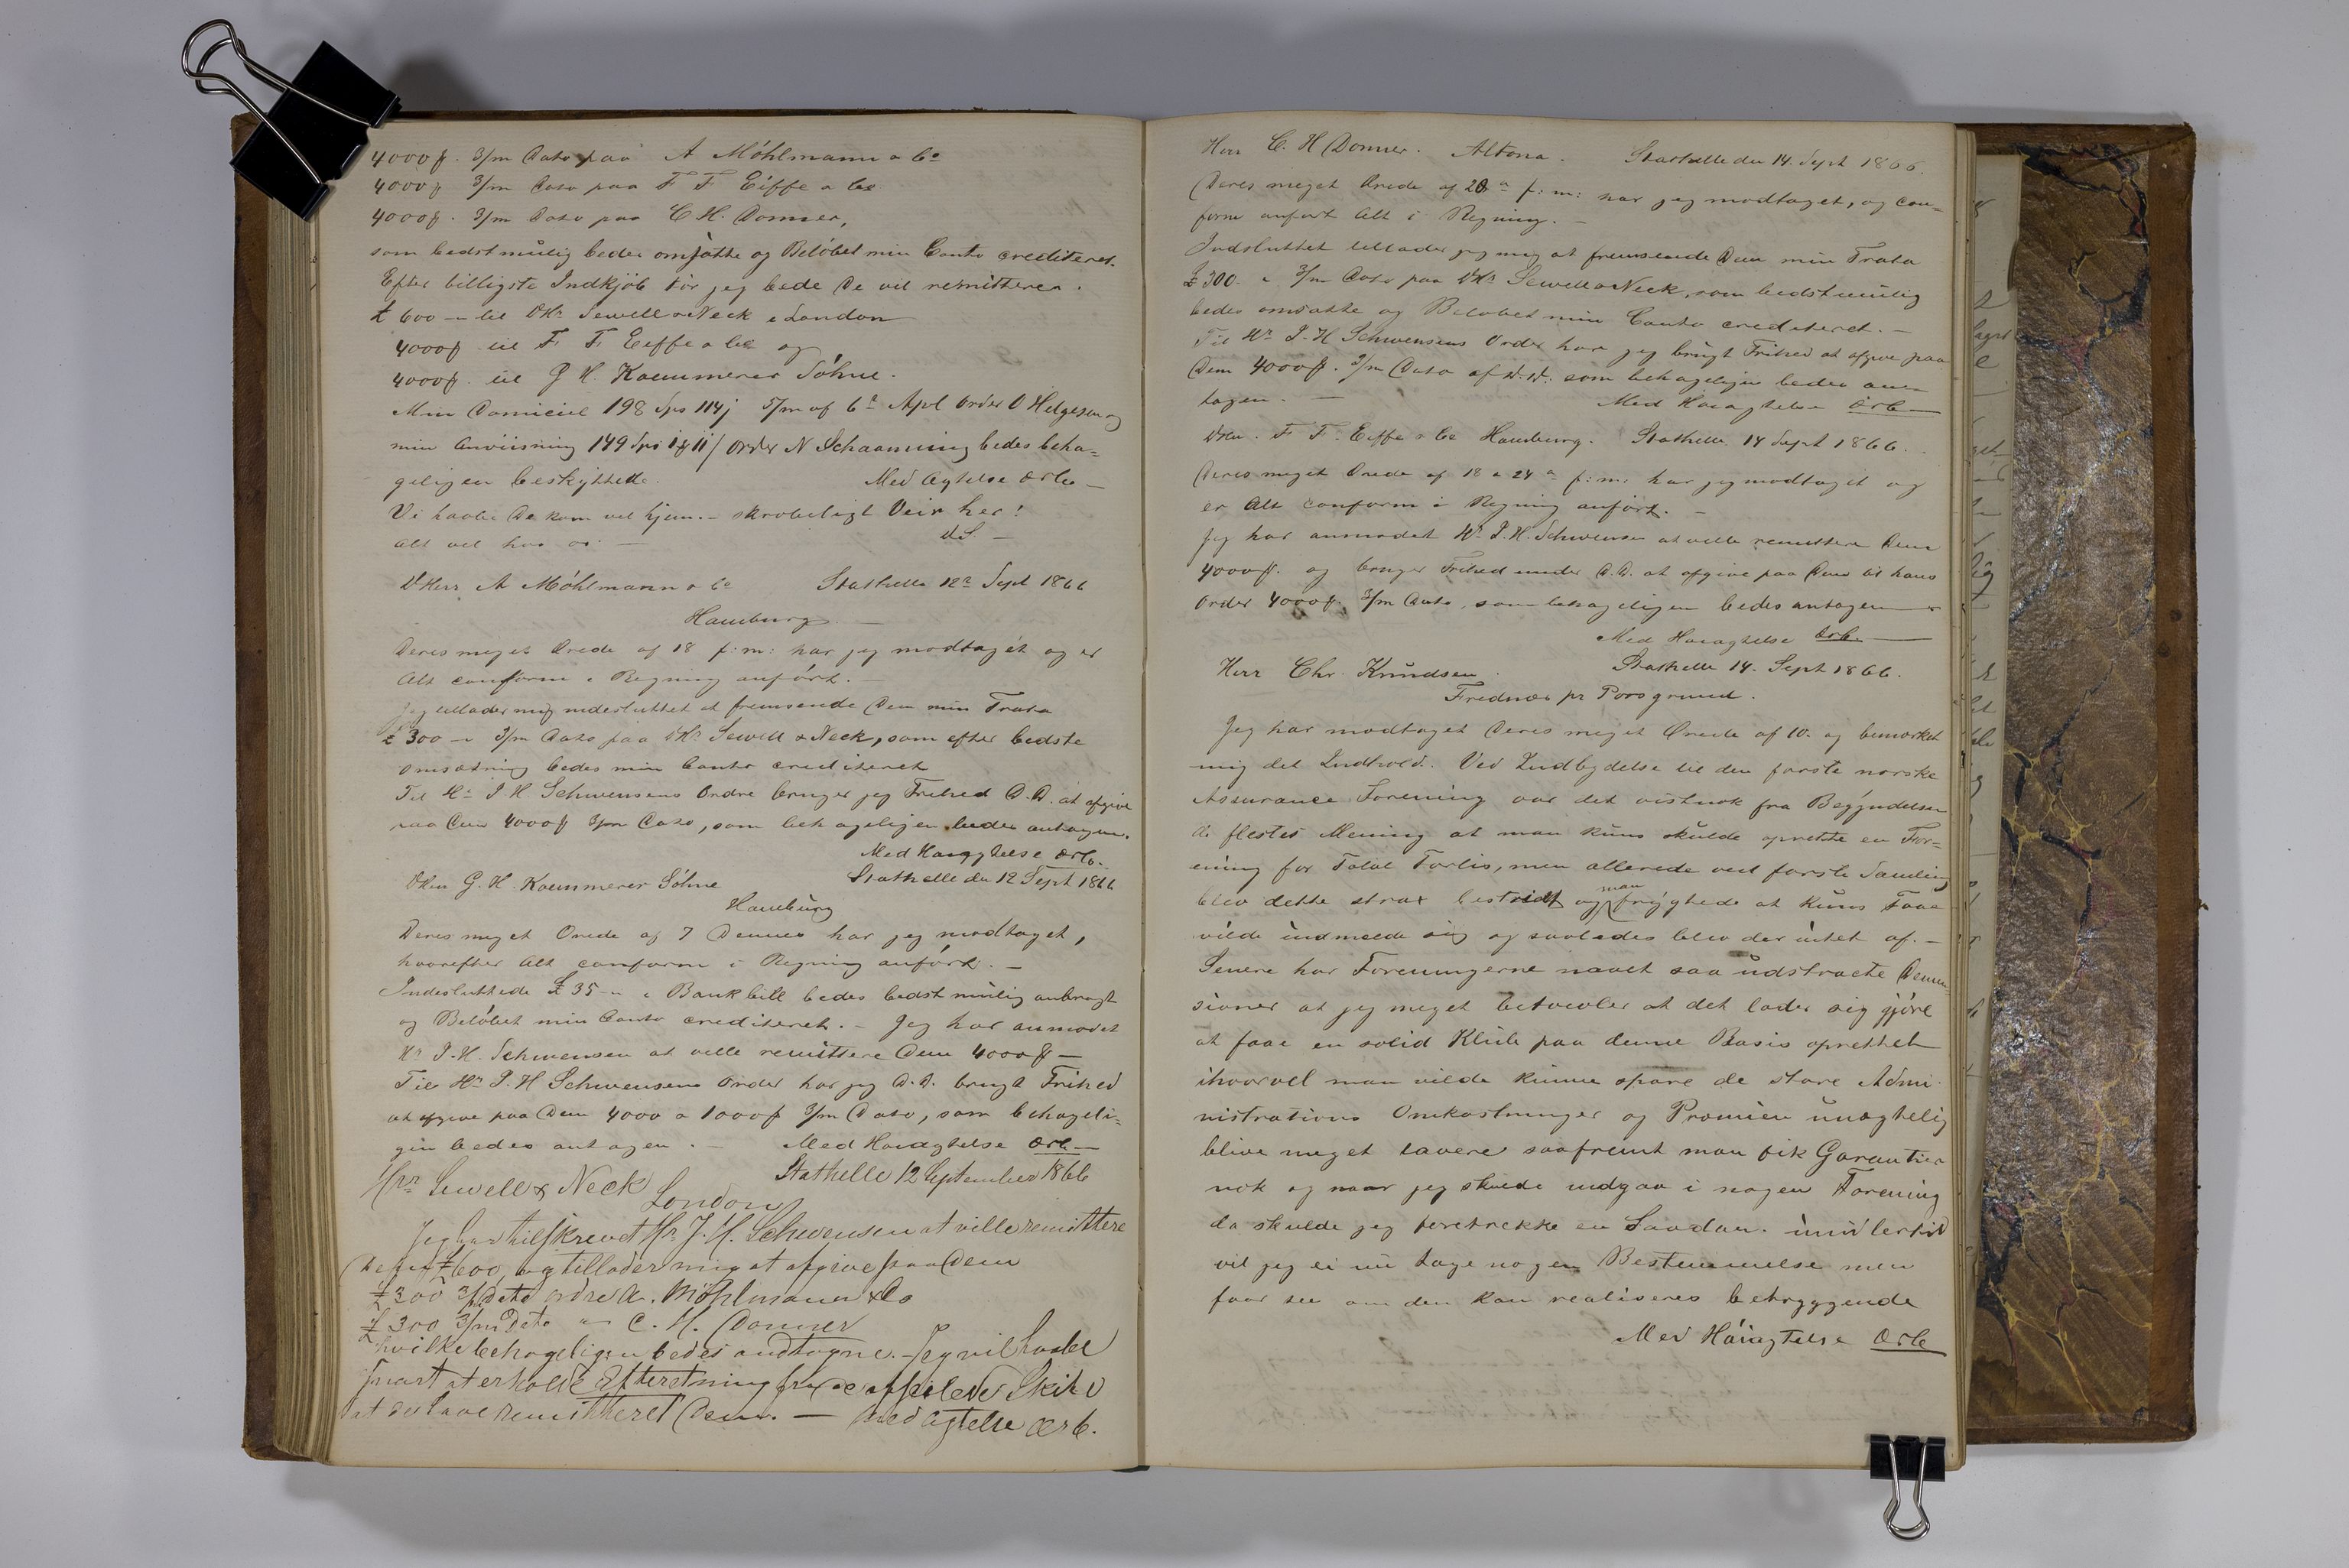 4000 ƒ. 3/m Dato paa A Möhlmann & Co
4000 ƒ 3/m Dato paa F F Eiffe & Co
4000 ƒ. 3/m Dato paa C H. Donner,
som bedst mulig bedes omsatte og Beløbet min Conto crediteret.
Efter billigste Indkjøb tør jeg bede De vil remittere.
£ 600 – til DHr. Sewell & Neck i London
4000 ƒ til F F. Eiffe & Co og
4000 ƒ. til G H. Kaemmerer Söhne.
Min Domicil 198 Sps 114 5/m af 6te Apl Order O Helgesen og
min Anviisning 149 Sps Order N Schaanning bedes beha=
geligen beskyttede. Med Agtelse ærb. –
Vi haabe De kom vel hjem. – skrækeligt Veir her!
Alt vel hos os. – d.S. –
DHerr. A Möhlmann & Co Stathelle 12te Sept 1866
Hamburg –
Deres meget Ærede af 18 f: m: har jeg modtaget og er
Alt conform i Regning anført. –
Jeg tillader mig indesluttet at fremsende Dem min Trata
£ 300 – i 3/m Dato paa DHr. Sewell & Neck, som efter bedste
Omsætning bedes min Conto crediteret
Til Hr. J H Schwensens Ordre bruger jeg Frihed D.D. at afgive
paa Dem 4000 ƒ 3/m Dato, som behageligen bedes antagen.
Med Høiagtelse ærb.
DHrr G. H. Kaemmerer Söhne Stathelle den 12 Sept 1866
Hamburg
Deres meget Ærede af 7 Dennes har jeg modtaget,
hvorefter Alt conform i Regning anført. –
Indesluttede £ 35 – i Bankbill bedes bedst mulig anbragt
og Beløbet min Conto crediteret. – Jeg har anmodet
Hr. J. H. Schwensen at ville remittere Dem 4000 ƒ –
Til Hr. J. H Schwensens Order har jeg D.D. brugt Frihed
at afgive paa Dem 4000 & 1000 ƒ 3/m Dato, som behageli=
gen bedes antagen. – Med Høiagtelse ærb –
Hrr Sewell & Neck Stathelle 12 September 1866
London
Jeg har tilskrevet Hr. J. H. Schwensen at ville remittere
Dem £ 600, og tillader mig at afgive paa Dem
£ 300 3/m Dato ordre A. Möhlmann & Co
£ 300 3/m Dato " C. H. Donner
hvilke behageligen bedes andtagne. – Jeg vil haabe
snart at erholde Efterretning fra de afseilede Skibe
at de have remitteret Dem. – Med Agtelse Ærb.
Herr C. H Donner. Altona. Stathelle den 14. Sept 1866.
Deres meget Ærede af 28de f: m: har jeg modtaget, og con=
form anført Alt i Regning. –
Indsluttet tillader jeg mig at fremsende Dem min Trata
£ 300. – i 3/m Dato paa DHr. Sewell & Neck, som bedst mulig
bedes omsatte og Beløbet min Conto crediteret. –
Til Hr. J. H Schwensens Order har jeg brugt Frihed at afgive paa
Dem 4000 ƒ. 3/m Dato af d.D. som behageligen bedes an=
tagen. – Med Høiagtelse Ærb –
DHrr. F F. Eiffe & Co Hamburg. Stathelle 14 Sept 1866.
Deres meget Ærede af 18 & 24de f: m: har jeg modtaget og
er Alt conform i Regning anført. –
Jeg har anmodet Hr. J. H. Schwensen at ville remittere Dem
4000 ƒ. og bruger Frihed under D.D. at afgive paa Dem til hans
Order 4000 ƒ. 3/m Dato, som behageligen bedes antagen –
Med Høiagtelse Ærb. –
Herr Chr. Knudsen Stathelle 14. Sept 1866.
Frednæs pr Porsgrund.
Jeg har modtaget Deres meget Ærede af 10. og bemærket
mig det Indhold. Ved Indbydelse til den første norske
Assurance Forening var det vistnok fra Begyndelsen
de flestes Mening at man kuns skulde oprette en For=
ening for Total Forlis, men allerede ved første Samling
blev dette strax bestridt og man frygtede at kuns Faae
vilde indmelde sig og saaledes blev der intet af. –
Senere har Foreningerne naaet saa udstracte Demen=
sioner at jeg meget betvivler at det lader sig gjöre
at faae en solid Klub paa denne Basis oprettet
ihvorvel man vilde kunne spare de store Admi=
nistrations Omkostninger og Præmien unægtelig
blive meget lavere saafremt man fik Garantier
nok og naar jeg skulde indgaa i nogen Forening
da skulde jeg foretrække en Saadan. imidlertid
vil jeg ei nu tage nogen Bestemmelse men
faar see om den kan realiseres betryggende
Med Höiagtelse Ærb